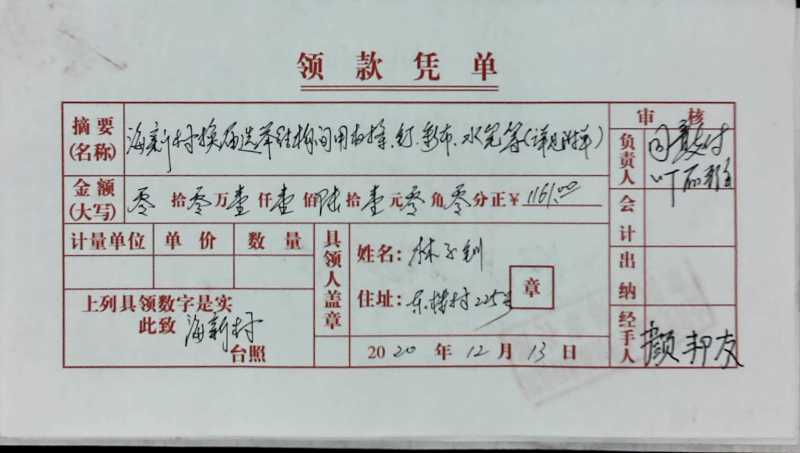 领款凭单
摘要(名称) 海新村换届选举 间用 钉、彩布、水笔等(详见附单)
金额(大写) 零拾零万壹仟壹佰陆拾壹元零角零分正￥1161.00
计量单位 单价 数量
上列具领数字是实
此致 海新村
台照
具领人盖章
姓名: 林
住址: 东 村225号
章
2020年12月13日
审核
负责人 同意支付
叶
会计
出纳
经手人 颜邦友